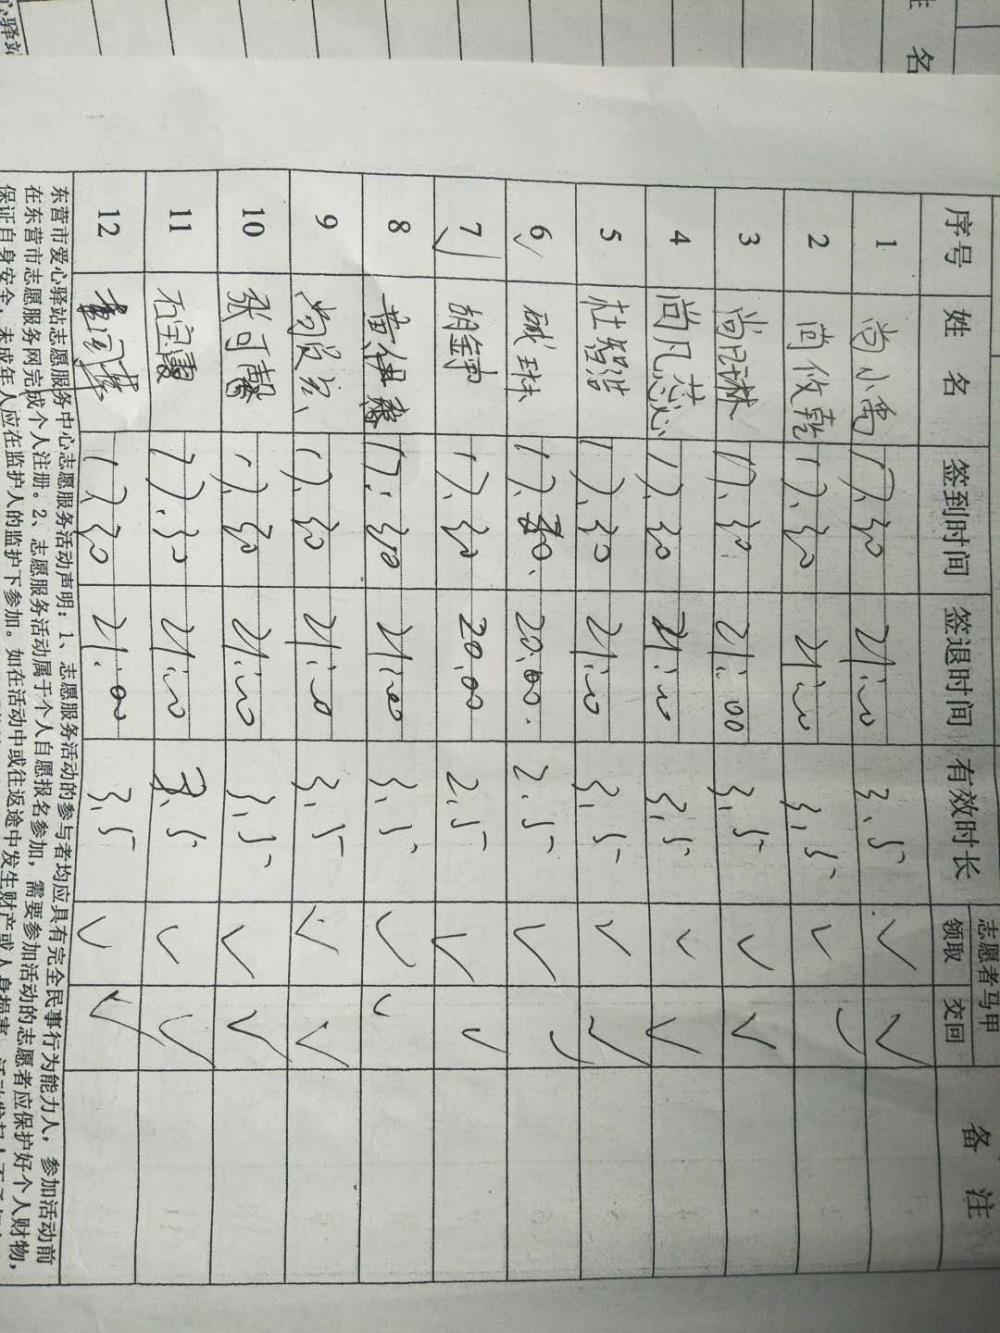 序号 姓名 签到时间 签退时间 有效时长 志愿者马甲 备注
领取 交回
1 尚小禹 17.30 21:00 3.5 ✓ ✓
2 尚攸乾 17.30 21:00 3.5 ✓ ✓
3 17.30 21:00 3.5 ✓ ✓
4 尚凡蕊 17.30 21:00 3.5 ✓ ✓
5 杜智浩 17.30 21:00 3.5 ✓ ✓
6 17.30 20.00 2.5 ✓ ✓
7 17.30 20.00 2.5 ✓ ✓
8 17:30 21:00 3.5 ✓ ✓
9 17.30 21:00 3.5 ✓ ✓
10 张可馨 17.30 21:00 3.5 ✓ ✓
11 17.30 21:00 3.5 ✓ ✓
12 17.30 21:00 3.5 ✓ ✓
东营市爱心驿站志愿服务中心志愿服务活动声明：1、志愿服务活动的参与者均应具有完全民事行为能力人，参加活动前
在东营市志愿服务网完成个人注册。2、志愿服务活动属于个人自愿报名参加，需要参加活动的志愿者应保护好个人财物，
保证自身安全，未成年人应在监护人的监护下参加。如在活动中或往返途中发生财产或人身损害，活动发起人不
姓名
心驿站